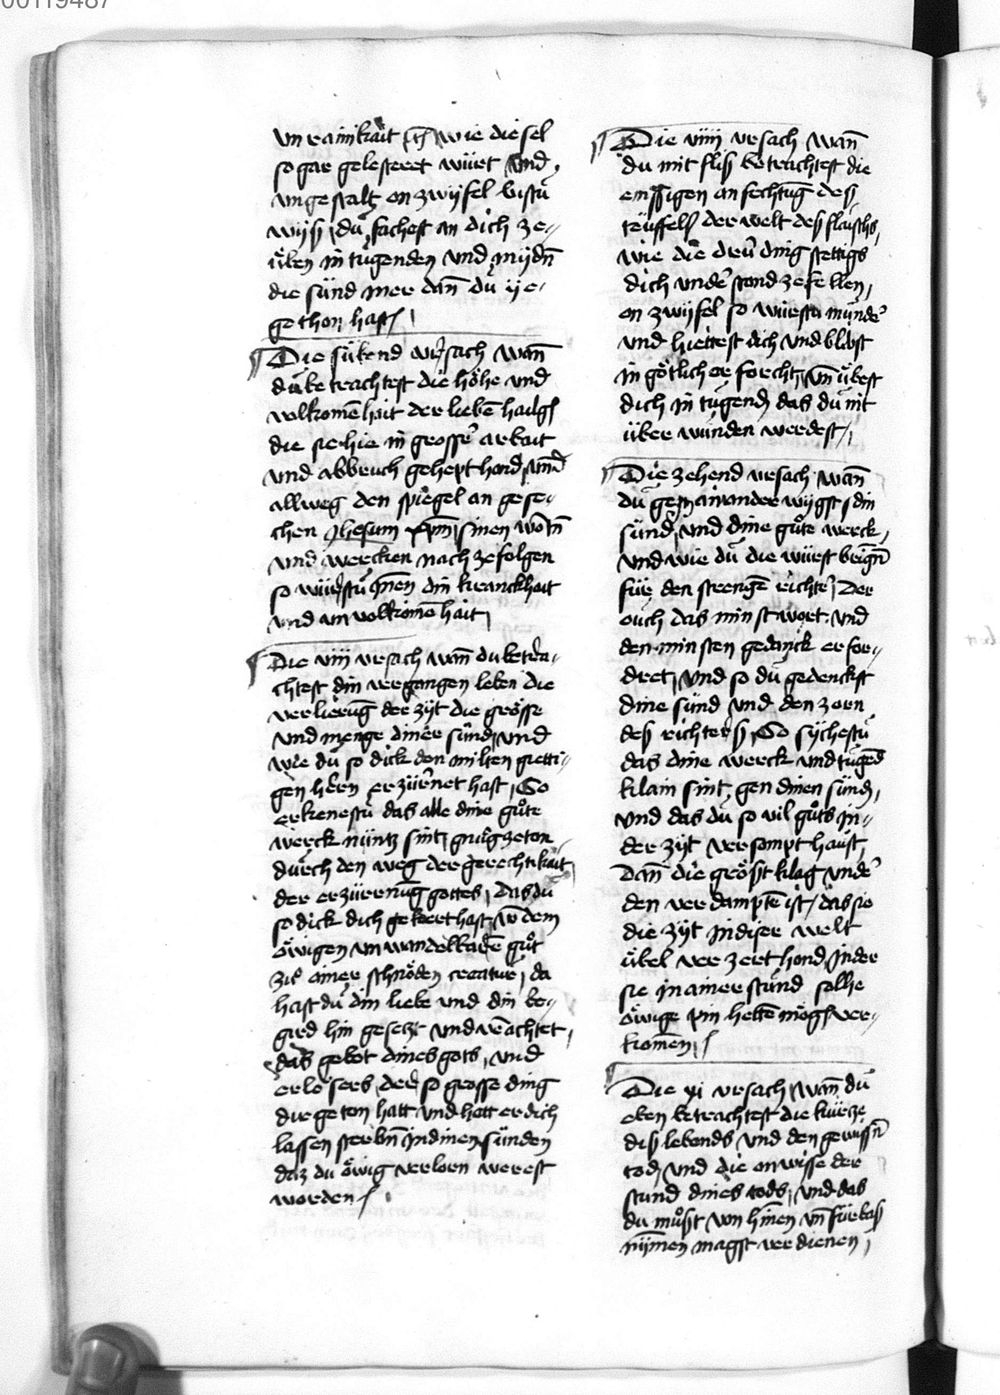 00119487
vnrainikait wie die sel
so gar gelesteret wùrt vnd
vngestalt on zwyfel bistu
wyß du fachest an dich ze-
ùben in tugenden vnd mydn̄
die sùnd mer dan̄ du ye-
gethon hast
Die sùbend vrsach wan̄
du betrachtest die höhe vnd
volkomēhait der lieben hailgē
die sie hie in grosser arbait
vnd abbruch gehept hond vnd
allweg den spiegel an gese-
chen Jhesum xpm̄ sinen wortn̄
vnd wercken nach ze folgen
so wùrstu jnnen din kranckhait
vnd vnvolkomēhait
Die viii vrsach wan̄ du betra-
chtest din vergangen leben die
verlierūg der zyt die grösse
vnd menge diner sùnd vnd
wie du so dick den milten gietti-
gen hern erzùrnet hast So
erkenestu das alle dine gůte
werck nùntz sint gnůg ze ton
durch den weg der gerechtikait
der erzùrnūg gottes das du
so dick dich gekert hast võ dem
öwigen vnwandelbarē gůt
zů ainer schnöden creatur da
hast du din liebe vnd din be-
gird hin gesetzt vnd verachtet
das gebot dines gots vnd
erlösers der so grosse ding
dir geton hatt vnd hett er dich
lassen sterbn̄ in dinen sùnden
daz du öwig verlorn werest
worden
Die viiii vrsach wan̄
du mit fliß betrachtest die
emssigen anfechtūg deß
tùffels der welt deß flaischs
wie die drù ding stettigs
dich vnderstond ze fellen
on zwyfel so wùrestu munder
vnd hiettest dich vnd blibst
in götlicher forcht vn̄ ùbest
dich in tugend das du nit
ùber wunden werdest
Die zehend vrsach wan̄
du gegen ainander wygst din
sùnd vnd dine gůte werck
vnd wie du die wùrst bringn̄
fùr den strengē richter Der
ouch das minst wort vnd
den minsten gedanck erfor-
dret vnd so du gedenckst
dine sùnd vnd den zorn
deß richters So sychestu
das dine werck vnd tugēd
klain sint gen dinen sùnd
vnd das du so vil gůts in
der zyt versompt haust
Dan̄ die gröst klag vnder
den verdamptē ist das sie
die zyt in diser welt
ùbel verzert hond in der
sie in ainer stund solhe
öwige pin hettē mögē ver-
komen
Die xi vrsach wan̄ du
eben betrachtest die kùrtze
diß lebends vnd den gewissn̄
tod vnd die onwisse der
stund dines tods vnd das
du můst von hinnen vn̄ fùrbaß
nymen magst verdienen